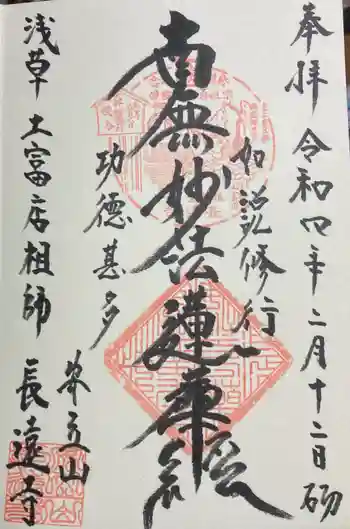 奉拝 令和四年二月十二日
如説修行
南無妙法蓮華経
功徳甚多
山
長遠寺
浅草 土富店祖師